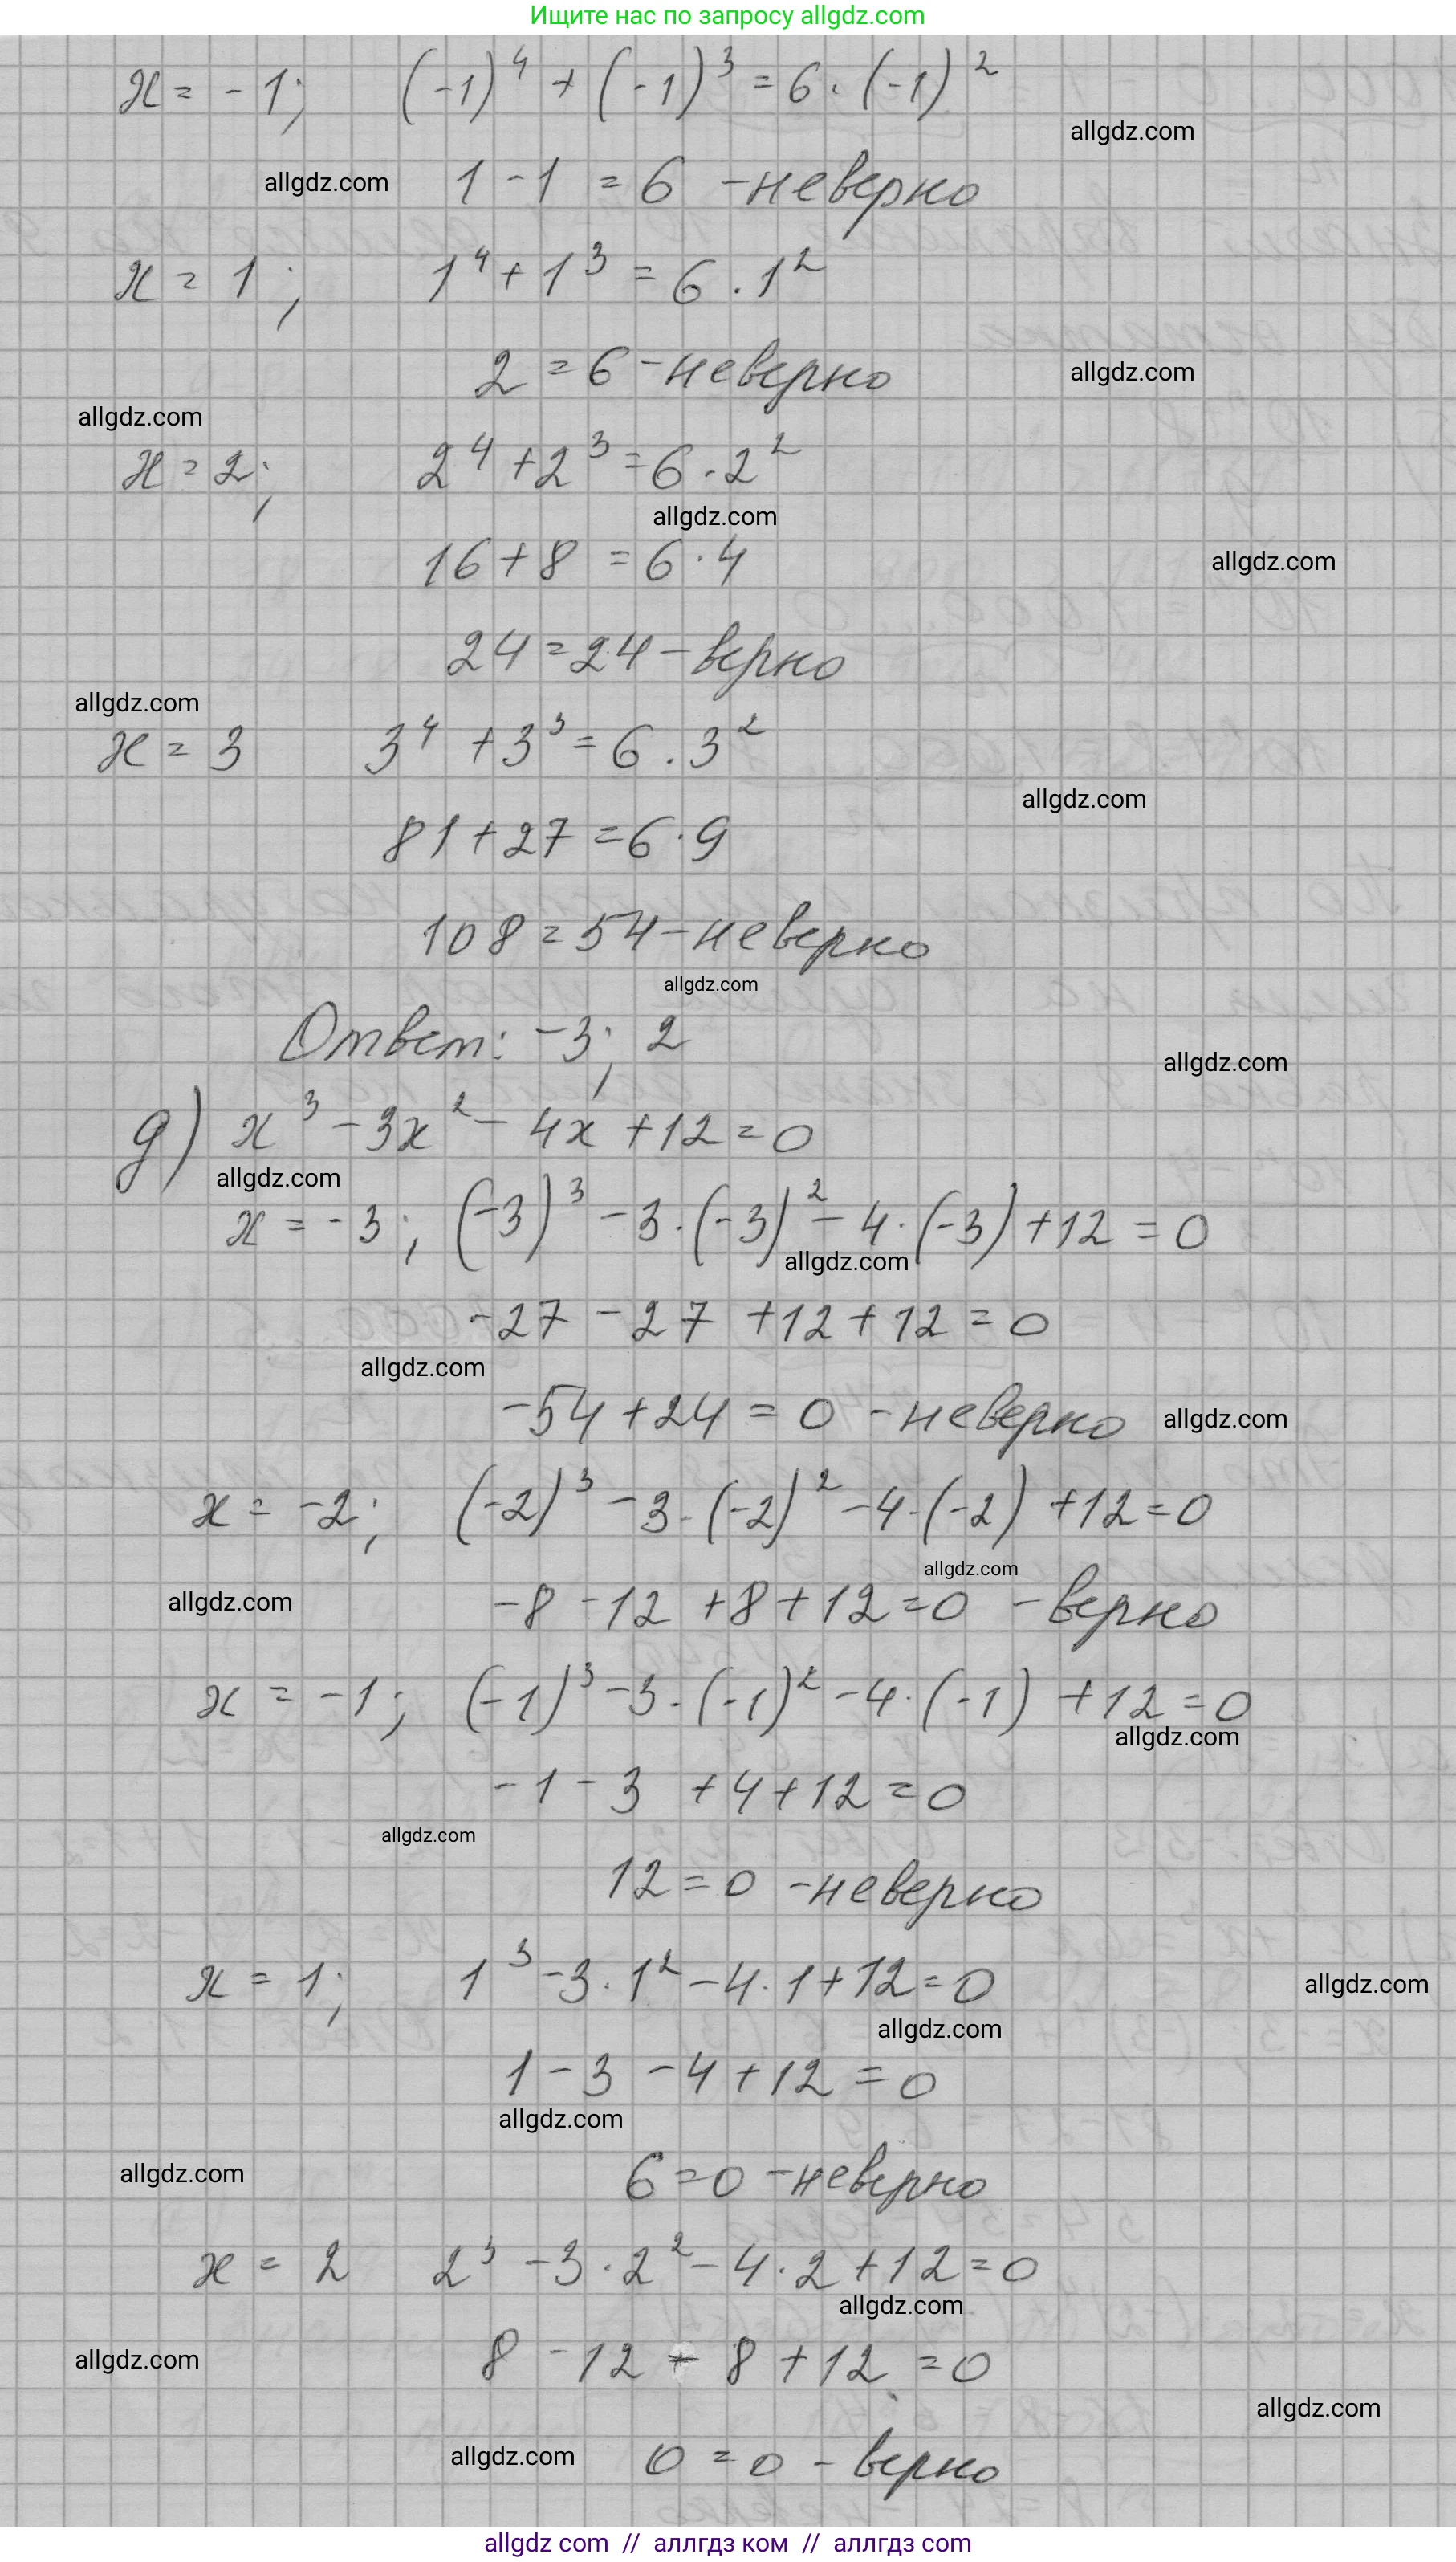 Ищите нас по запросу allgdz.com
x = -1; (-1)⁴ + (-1)³ = 6 · (-1)²
allgdz.com
allgdz.com
1 - 1 = 6 - неверно
x = 1; 1⁴ + 1³ = 6 · 1²
2 = 6 - неверно
allgdz.com
allgdz.com
x = 2; 2⁴ + 2³ = 6 · 2²
allgdz.com
16 + 8 = 6 · 4
allgdz.com
24 = 24 - верно
allgdz.com
x = 3 3⁴ + 3³ = 6 · 3²
allgdz.com
81 + 27 = 6 · 9
108 = 54 - неверно
allgdz.com
Ответ: -3; 2
allgdz.com
д) x³ - 3x² - 4x + 12 = 0
allgdz.com
x = -3; (-3)³ - 3 · (-3)² - 4 · (-3) + 12 = 0
allgdz.com
-27 - 27 + 12 + 12 = 0
allgdz.com
-54 + 24 = 0 - неверно
allgdz.com
x = -2; (-2)³ - 3 · (-2)² - 4 · (-2) + 12 = 0
allgdz.com
allgdz.com
-8 - 12 + 8 + 12 = 0 - верно
x = -1; (-1)³ - 3 · (-1)² - 4 · (-1) + 12 = 0
allgdz.com
-1 - 3 + 4 + 12 = 0
allgdz.com
12 = 0 - неверно
x = 1; 1³ - 3 · 1² - 4 · 1 + 12 = 0
allgdz.com
allgdz.com
1 - 3 - 4 + 12 = 0
allgdz.com
allgdz.com
6 = 0 - неверно
x = 2 2³ - 3 · 2² - 4 · 2 + 12 = 0
allgdz.com
8 - 12 - 8 + 12 = 0
allgdz.com
allgdz.com
0 = 0 - верно
allgdz.com
allgdz com // аллгдз ком // аллгдз.com